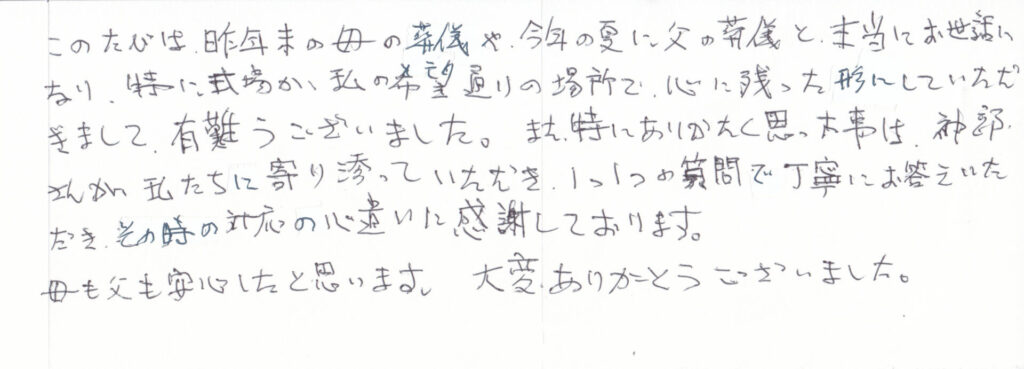 このたびは、昨年末の母の葬儀や、今年の夏に父の葬儀と、本当にお世話に
なり、特に式場が、私の希望通りの場所で、心に残った形にしていただ
きまして、有難うございました。また、特にありがたく思った事は、神部
さんが、私たちに寄り添っていただき、1つ1つの質問で丁寧にお答えいた
だき、その時の対応の心遣いに感謝しております。
母も父も安心したと思います。 大変ありがとうございました。